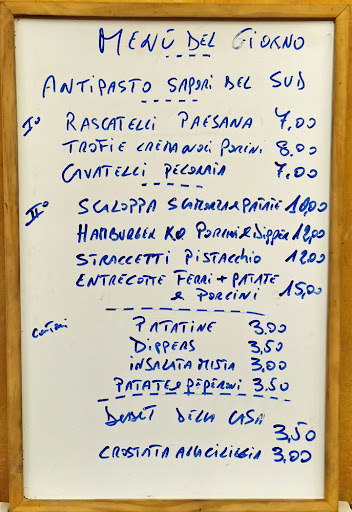 MENÙ DEL GIORNO
ANTIPASTO SAPORI DEL SUD
I° RASCATELLI PAESANA 7,00
TROFIE CREMA NOCI PORCINI 8,00
CAVATELLI PECORAIA 7,00
II° SCALOPPA SCAMORZA & PATATE 10,00
HAMBURGER KG PORCINI & DIPPER 12,00
STRACCETTI PISTACCHIO 12,00
ENTRECOTTE FERRI + PATATE
& PORCINI 15,00
Contorni PATATINE 3,00
DIPPERS 3,50
INSALATA MISTA 3,00
PATATE & PEPERONI 3,50
DESSERT DELLA CASA
3,50
CROSTATA ALLA CILIEGIA 3,00